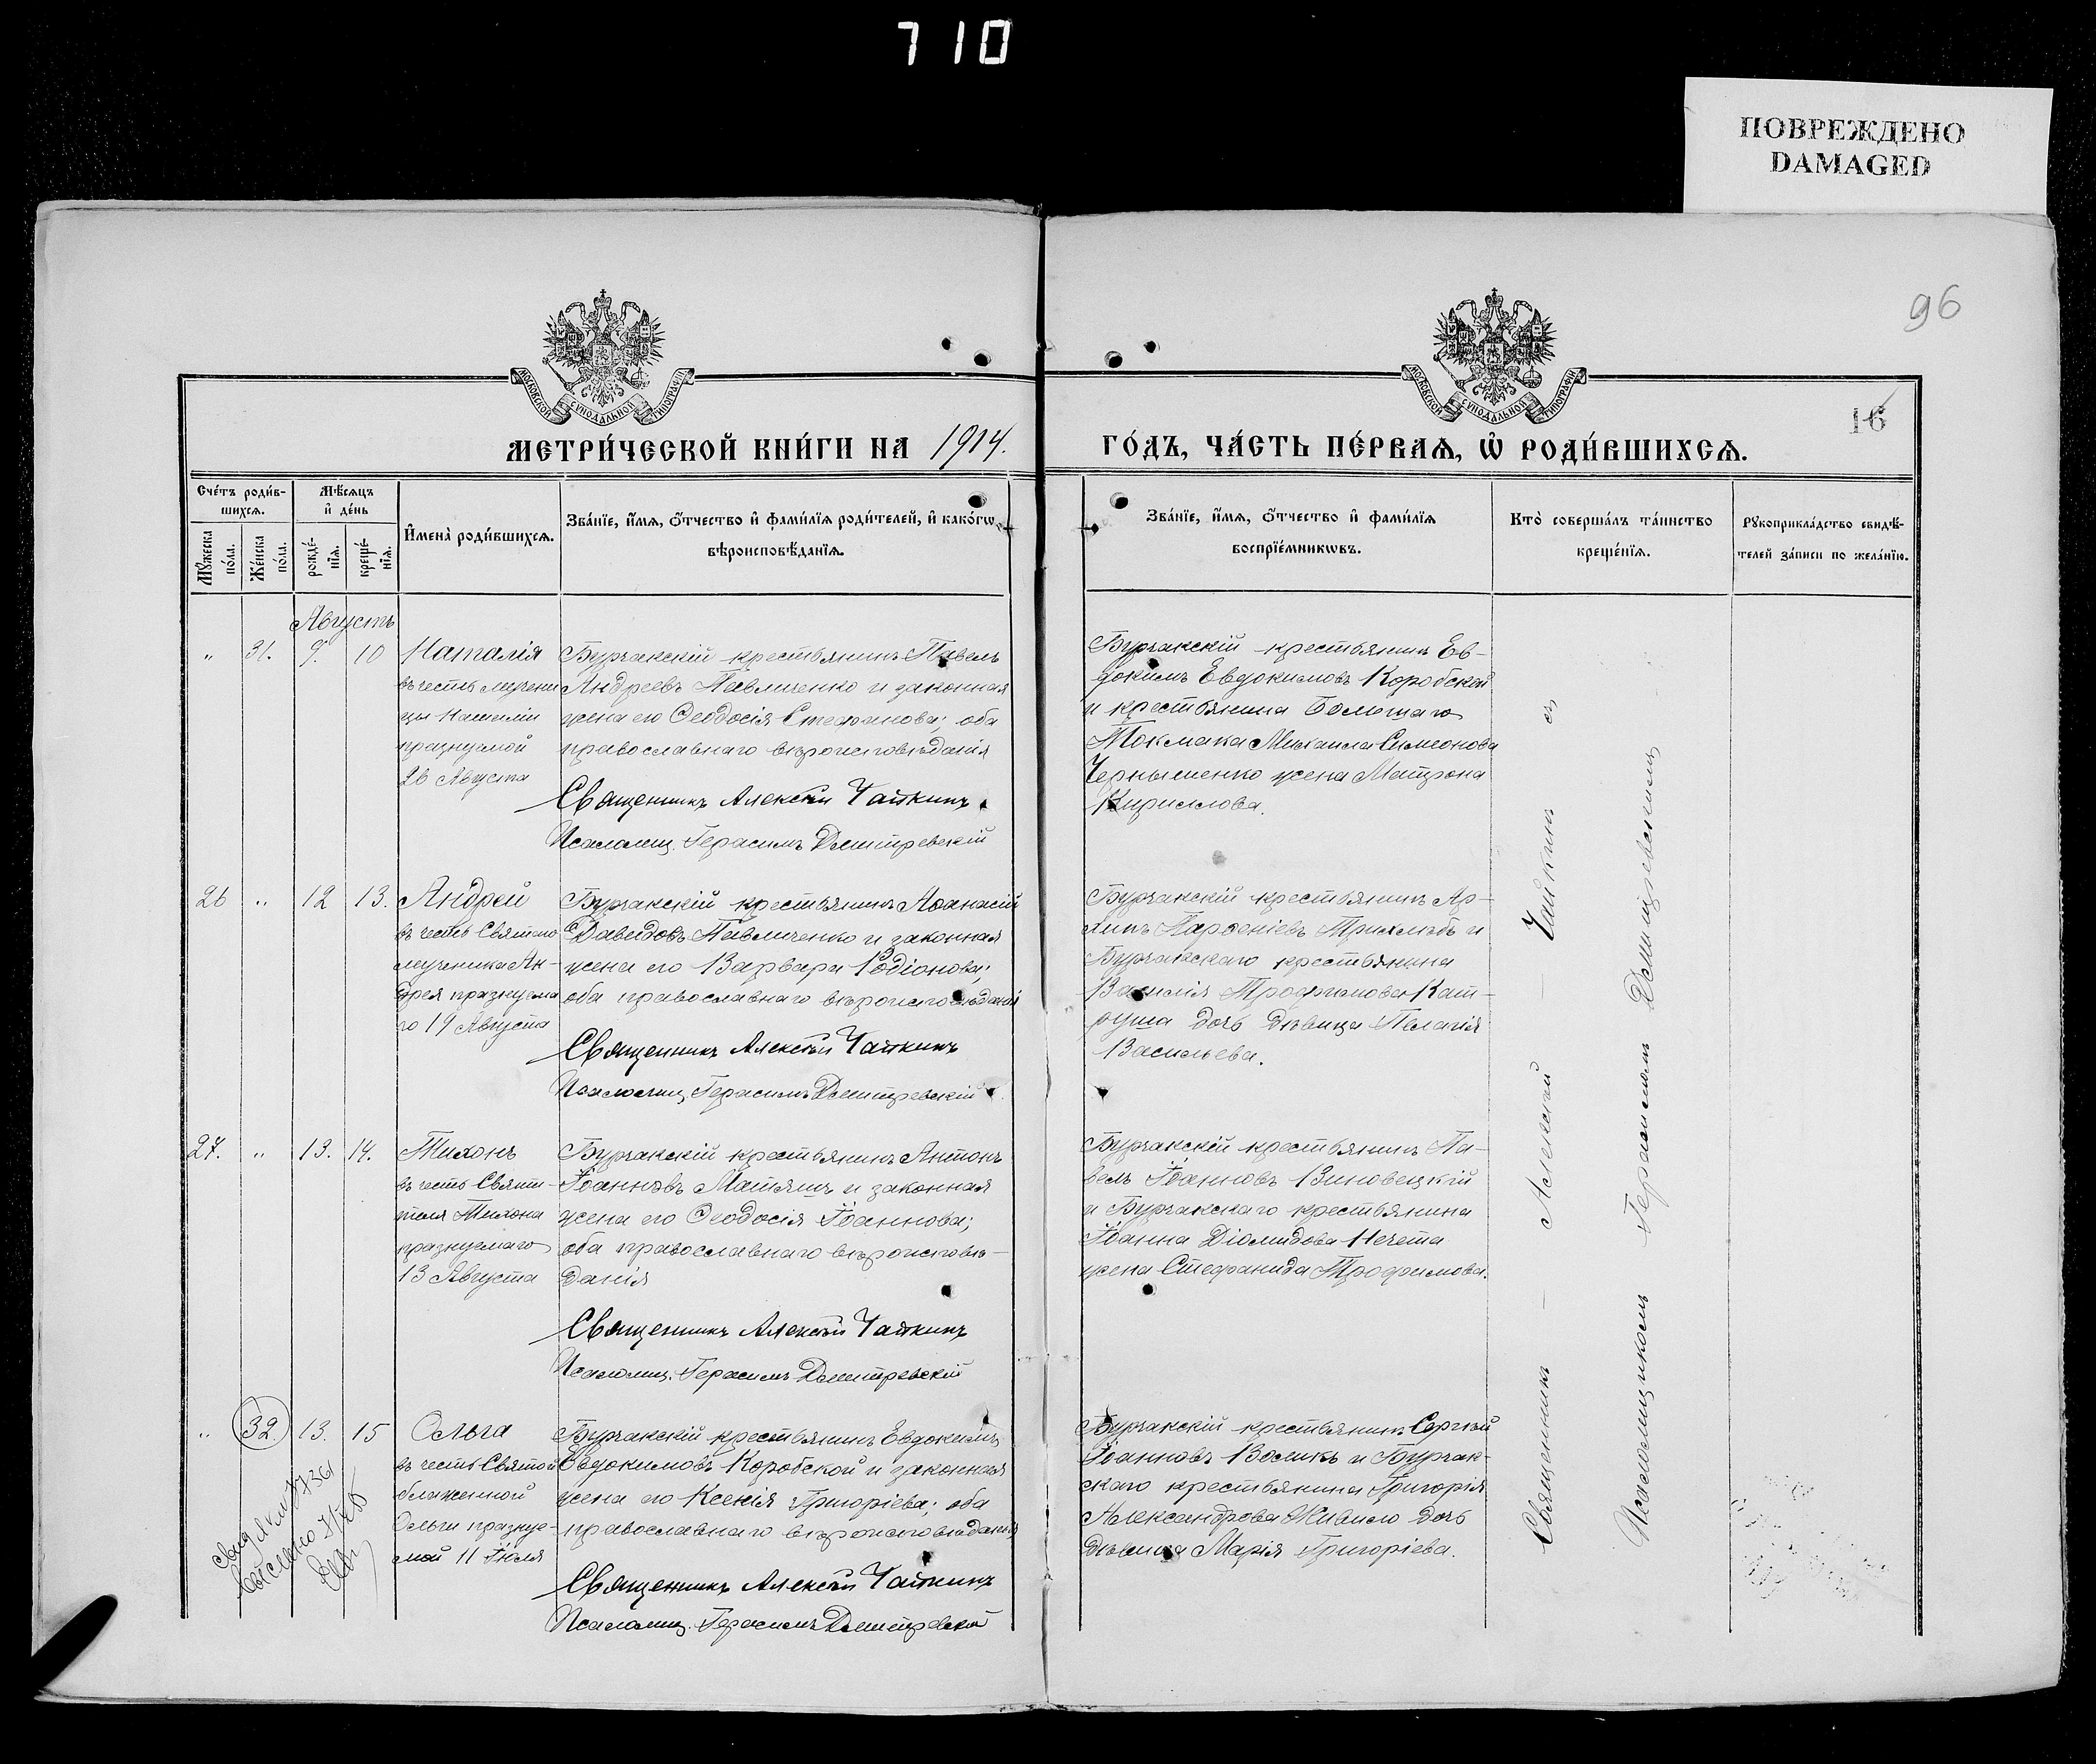 710
ПОВРЕЖДЕНО
DAMAGED
96
16
МОСКОВСКОЙ СУНОДАЛЬНОЙ ТИПОГРАФІИ
МОСКОВСКОЙ СУНОДАЛЬНОЙ ТИПОГРАФІИ
МЕТРИ́ЧЕСКОЙ КНИ́ГИ НА 1914.
ГО́ДЪ, ЧА́СТЬ ПЕ́РВАѦ, Ѡ҆ РОДИ́ВШИХСѦ.
Сче́тъ роди́в-
шихсѧ.
Мѣ́сѧцъ
и҆ де́нь
Мꙋ́жеска
по́ла.
Же́нска
по́ла.
рожде́-
нїѧ.
креще́-
нїѧ.
И҆мена̀ роди́вшихсѧ.
Зва́нїе, и҆́мѧ, ѻ҆́тчество и҆ фами́лїѧ роди́телей, и҆ како́гѡ
вѣроисповѣ́данїѧ.
Зва́нїе, и҆́мѧ, ѻ҆́тчество и҆ фами́лїѧ
воспрїе́мникѡвъ.
Кто̀ соверша́лъ та́инство
креще́нїѧ.
Рꙋкоприкла́дство свидѣ́-
телей за́писи по жела́нїю.
Августъ
" 31. 9. 10 Наталія
въ честь мучени
цы Наталіи
празнуемой
26 Августа
Бурчакскій крестьянинъ Павелъ
Андреевъ Павличенко и законная
жена его Ѳеодосія Стефанова; оба
православнаго вѣроисповѣданія
Священникъ Алексѣй Чайкинъ
Псаломщ. Герасимъ Дмитревскій
Бурчакскій крестьянинъ Ев-
докимъ Евдокимовъ Коробской
и крестьянина Большаго
Токмака Михаила Симеонова
Чернышенко жена Матрона
Кириллова.
26 " 12 13. Андрей
въ честь Святаго
мученика Ан-
дрея празнуема
го 19 Августа
Бурчакскій крестьянинъ Аѳанасій
Давидовъ Павличенко и законная
жена его Варвара Родіонова;
оба православнаго вѣроисповѣданія
Священникъ Алексѣй Чайкинъ
Псаломщ. Герасимъ Дмитревскій
Бурчакскій крестьянинъ Ар-
хипъ Парѳеніевъ Трихлѣбъ и
Бурчакскаго крестьянина
Василія Трофимова Кат-
руша дочь дѣвица Пелагія
Васильева.
27. " 13. 14. Тихонъ
въ честь Святи-
теля Тихона
празнуемаго
13 Августа
Бурчакскій крестьянинъ Антонъ
Іоанновъ Матяшъ и законная
жена его Ѳеодосія Іоаннова;
оба православнаго вѣроисповѣ-
данія
Священникъ Алексѣй Чайкинъ
Псаломщ. Герасимъ Дмитревскій
Бурчакскій крестьянинъ Па-
велъ Іоанновъ Виновецкій
и Бурчакскаго крестьянина
Іоанна Діомидова Нечета
жена Стефанида Трофимова.
" 32. 13. 15 Ольга
въ честь Святой
блаженной
Ольги празнуе-
мой 11 Іюля
Бурчакскій крестьянинъ Евдокимъ
Евдокимовъ Коробской и законная
жена его Ксенія Григоріева; оба
православнаго вѣроисповѣданія
Священникъ Алексѣй Чайкинъ
Псаломщ. Герасимъ Дмитревскій
Бурчакскій крестьянинъ Сергѣй
Іоанновъ Восикъ и Бурчак-
скаго крестьянина Григорія
Александрова Живило дочь
дѣвица Марія Григоріева.
Священникъ — Алексѣй — Чайкинъ съ
Псаломщикомъ Герасимомъ Дмитревскимъ